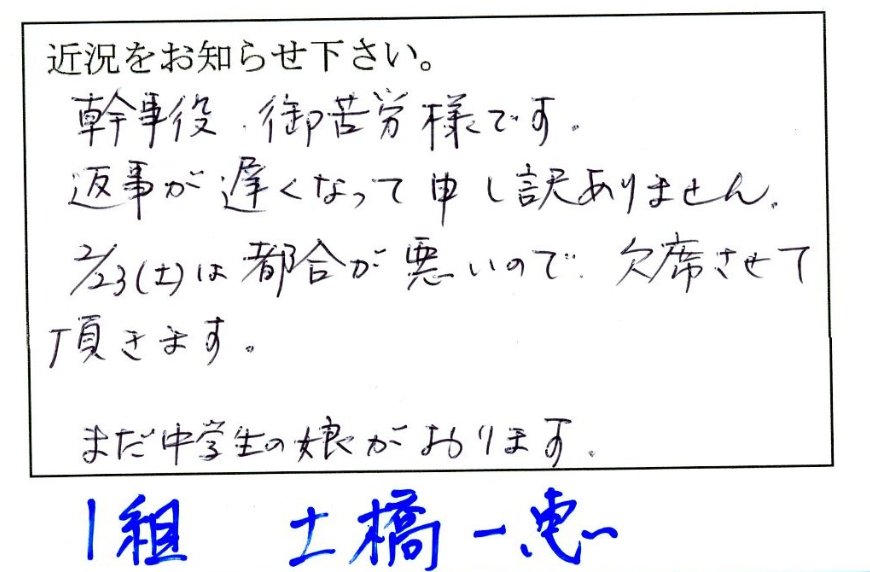 近況をお知らせ下さい。
幹事役、御苦労様です。
返事が遅くなって申し訳ありません。
2/23(土)は都合が悪いので、欠席させて
頂きます。
まだ中学生の娘がおります。
1組 土橋一恵